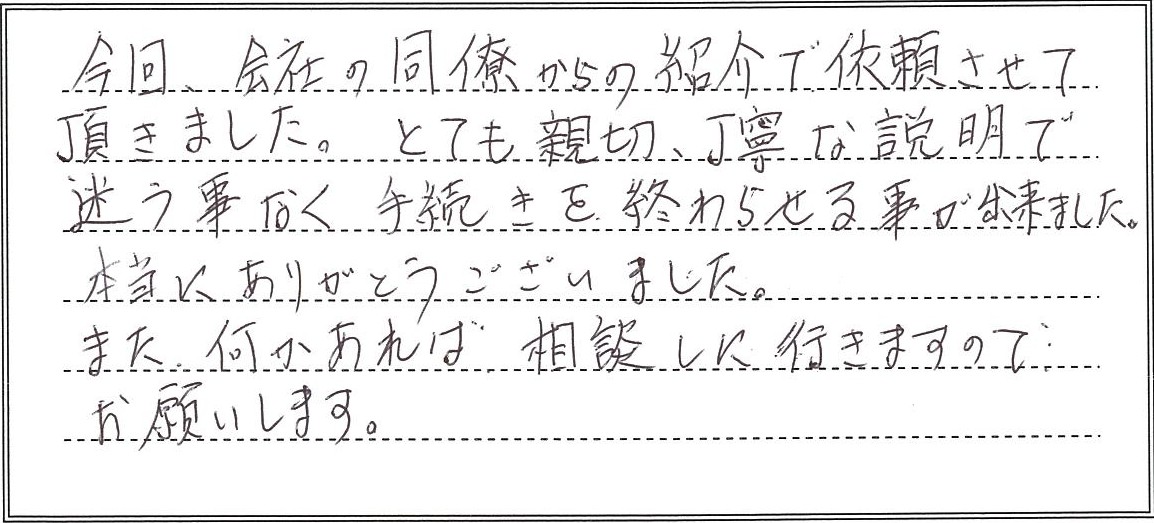 今回、会社の同僚からの紹介で依頼させて
頂きました。とても親切、丁寧な説明で
迷う事なく手続きを終わらせる事が出来ました。
本当にありがとうございました。
また何かあれば相談しに行きますので
お願いします。